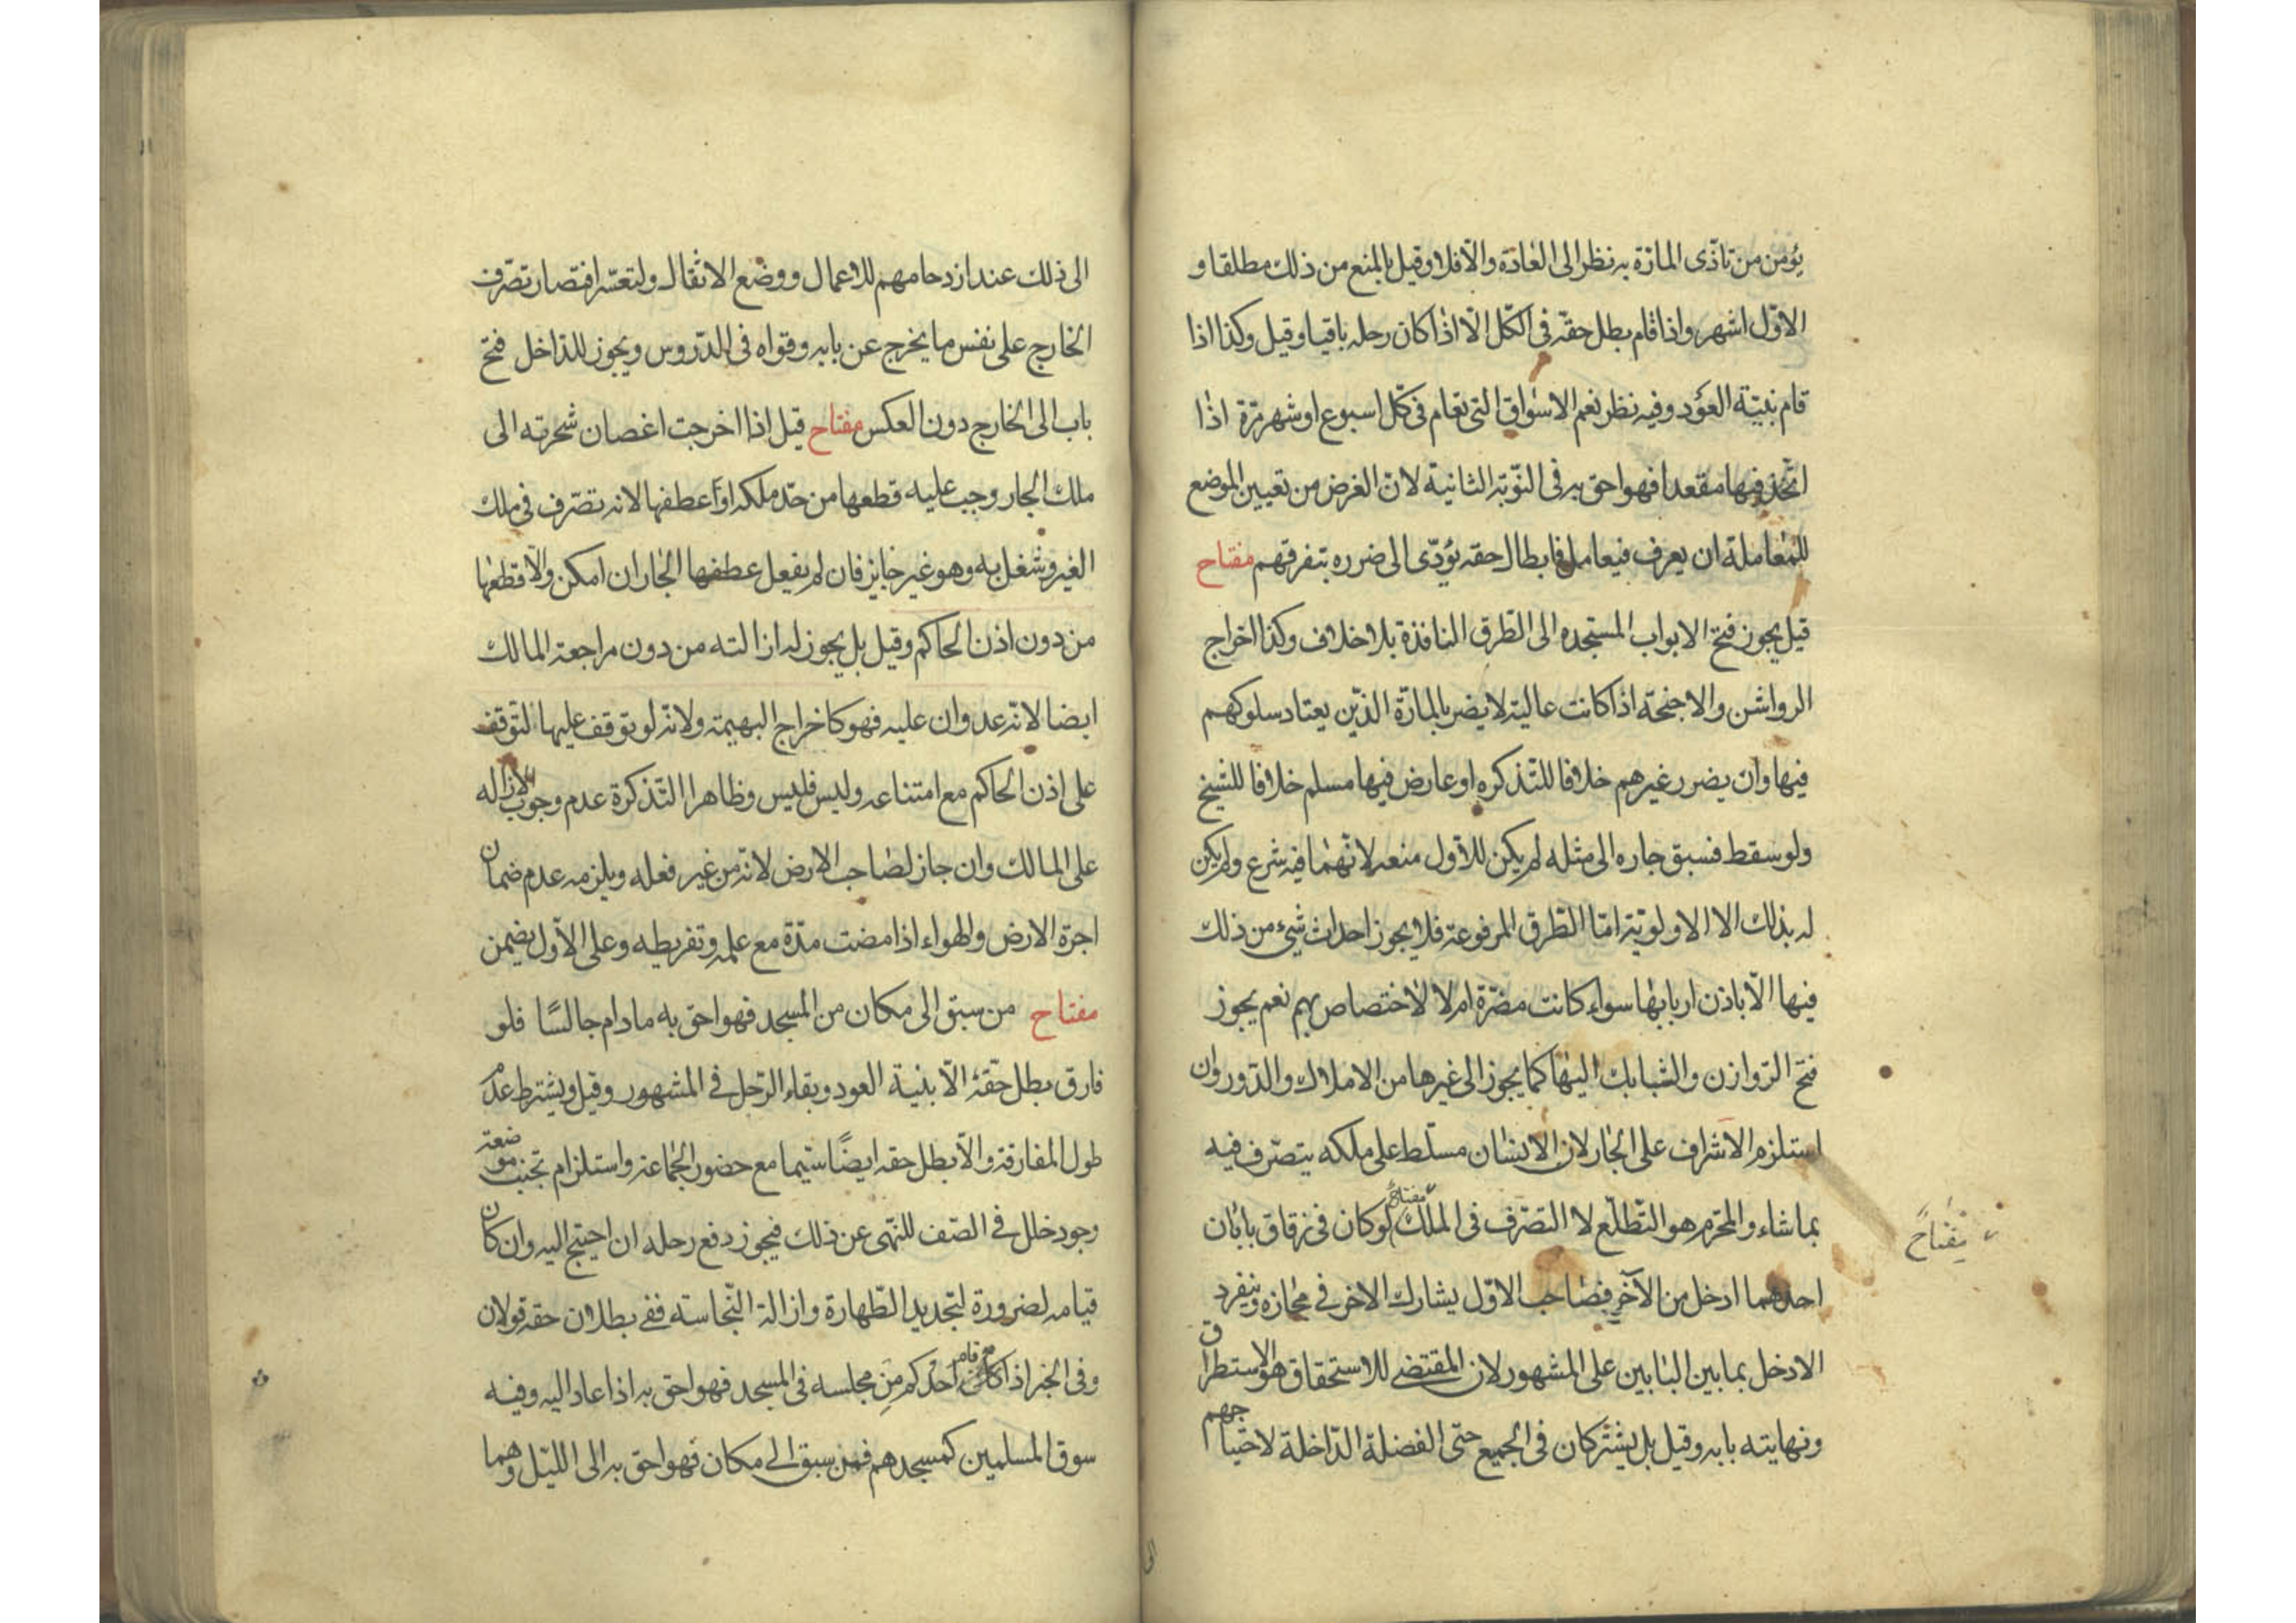 يؤمن من تاذّى المارّة به نظر الى العادة والّا فلا وقيل بالمنع من ذلك مطلقا و
الاوّل اشهر واذا قام بطل حقّه فى الكّل الّا اذا كان رحله باقيا وقيل وكذا اذا
قام بنيّة العود وفيه نظر نعم الاسواق التى تقام فى كلّ اسبوع او شهر مرّة اذا
اتّخذ فيها مقعدا فهو احق به فى النّوبة الثانية لانّ الغرض من تعيين الموضع
للمعاملة ان يعرف فيعامل فابطال حقه يؤدّى الى ضرره بتفرقهم مفتاح
قيل يجوز فتح الابواب المستجده الى الطّرق النافذة بلا خلاف وكذا اخراج
الرواشن والاجنحة اذا كانت عالية لا يضر بالمارّة الذّين يعتاد سلوكهم
فيها وان يضر غيرهم خلافا للتّذكره او عارض فيها مسلم خلافا للشيخ
ولو سقط فسبق جاره الى مثله لم يكن للاوّل منعه لانّهما فيه شرع ولم يكن
له بذلك الا الاولويّة امّا الطّرق المرفوعة فلا يجوز احداث شىء من ذلك
فيها الّا باذن اربابها سواء كانت مضرّة ام لا لاختصاص بهم نعم يجوز
فتح الرّوازن والشبابك اليها كما يجوز الى غيرها من الاملاك والدّور وان
استلزم الاشراف على الجار لان الانسان مسلّط على ملكه يتصّرف فيه
بما شاء والمحرّم هو التّطلّع لا التصّرف فى الملك مفتاح لو كان فى زقاق بابان
مفتاح
احدهما ادخل من الآخر فصاحب الاوّل يشارك الاخر فى مجازه وينفرد
الادخل بما بين البابين على المشهور لان المقتضى للاستحقاق هو الاستطراق
ونهايته بابه وقيل بل يشتركان فى الجميع حتّى الفضلة الدّاخلة لاحتياجهم
الى
الى ذلك عند ازدحامهم للاعمال ووضع الاثقال ولتعسّر اقتصار تصّرف
الخارج على نفس ما يخرج عن بابه وقواه فى الدّروس ويجوز للدّاخل فتح
باب الى الخارج دون العكس مفتاح قيل اذا اخرجت اغصان شجرته الى
ملك الجار وجب عليه قطعها من حدّ ملكه او عطفها لانه تصّرف فى ملك
الغير وشغل به وهو غير جايز فان لم يفعل عطفها الجار ان امكن والّا قطعها
من دون اذن الحاكم وقيل بل يجوز له ازالته من دون مراجعة المالك
ايضا لانّه عدوان عليه فهو كاخراج البهيمة ولانّه لو توقف عليها لتوقف
على اذن الحاكم مع امتناعه وليس فليس وظاهر التّذكرة عدم وجوب الازاله
على المالك وان جاز لصاحب الارض لانّه من غير فعله ويلزمه عدم ضمان
اجرة الارض والهواء اذا مضت مدّة مع علمه وتفريطه وعلى الاوّل يضمن
مفتاح من سبق الى مكان من المسجد فهو احق به ما دام جالسًا فلو
فارق بطل حقّه الّا بنية العود وبقاء الرّحل فى المشهور وقيل ويشترط عدم
طول المفارقة والّا بطل حقه ايضًا سيّما مع حضور الجماعة واستلزام تجنب موضعه
وجود خلل فى الصّف للنّهى عن ذلك فيجوز دفع رحله ان احتيج اليه وان كان
قيامه لضرورة لتجديد الطّهارة وازالة النّجاسته ففى بطلان حقه قولان
وفى الخبر اذا قام احدكم من مجلسه فى المسجد فهو احق به اذا عاد اليه وفيه
سوق المسلمين كمسجدهم فمن سبق الى مكان فهو احق به الى اللّيل وهما